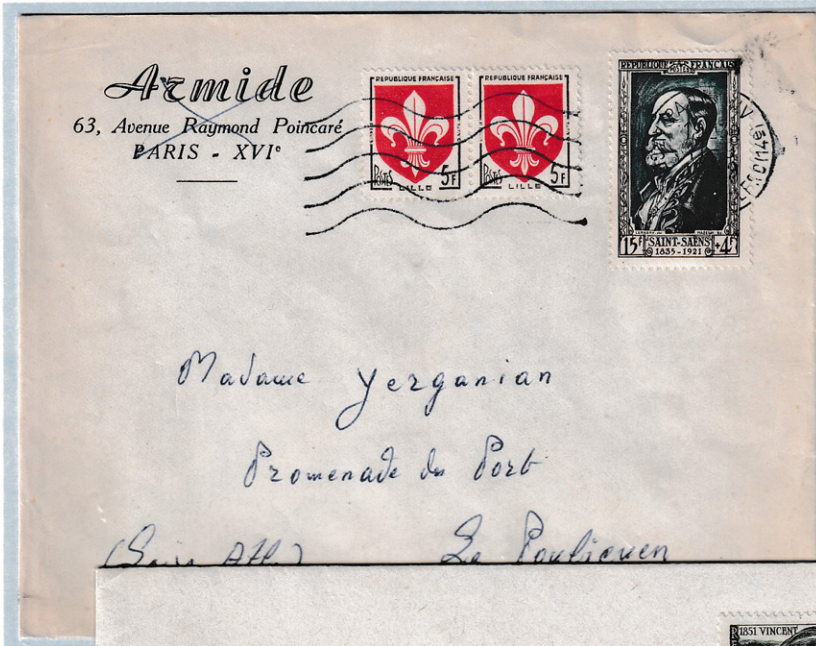 Armide
63, Avenue Raymond Poincaré
PARIS - XVIᵉ
REPUBLIQUE FRANÇAISE
5F
POSTES
LILLE
REPUBLIQUE FRANÇAISE
5F
POSTES
LILLE
REPUBLIQUE FRANÇAISE
POSTES
15F SAINT-SAËNS +4F
1835-1921
Madame Yerganian
Promenade du Port
(Loire Atl.) Le Pouliguen
1851 VINCENT